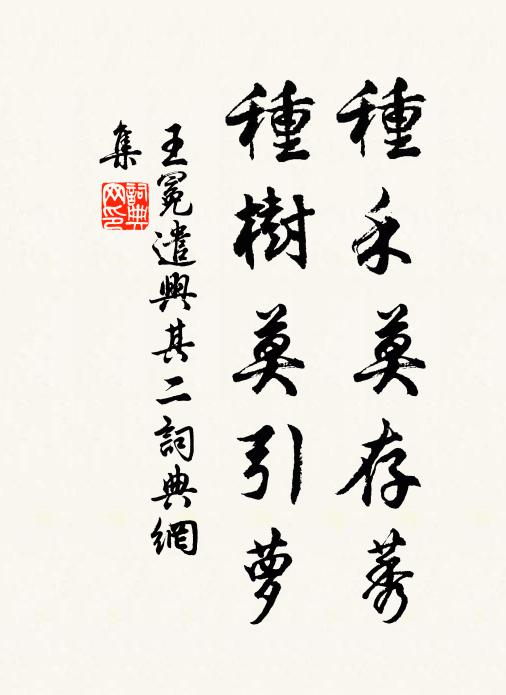 種禾莫存莠
種樹莫引蘿
王冕遣興其二詞典網
集
詞典网印